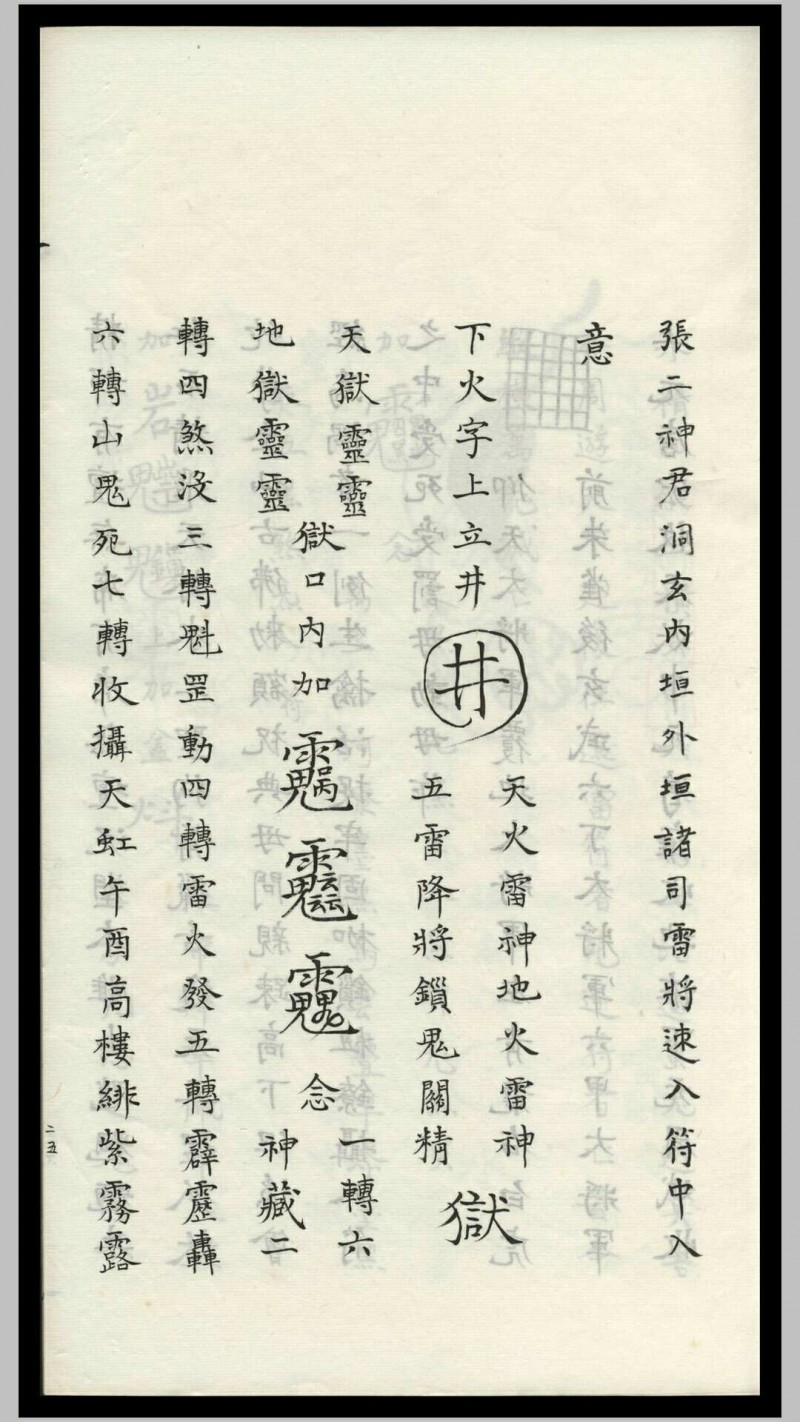 張二神君洞玄內垣外垣諸司雷將速入符中入
意
下火字上立井
井
天火雷神地火雷神
五雷降將鎖鬼關精
獄
天獄靈靈
地獄靈靈
獄口內加
念
一轉六
神藏二
轉四煞沒三轉魁罡動四轉雷火發五轉霹靂轟
六轉山鬼死七轉收攝天虹午酉高樓緋紫霧露
二五